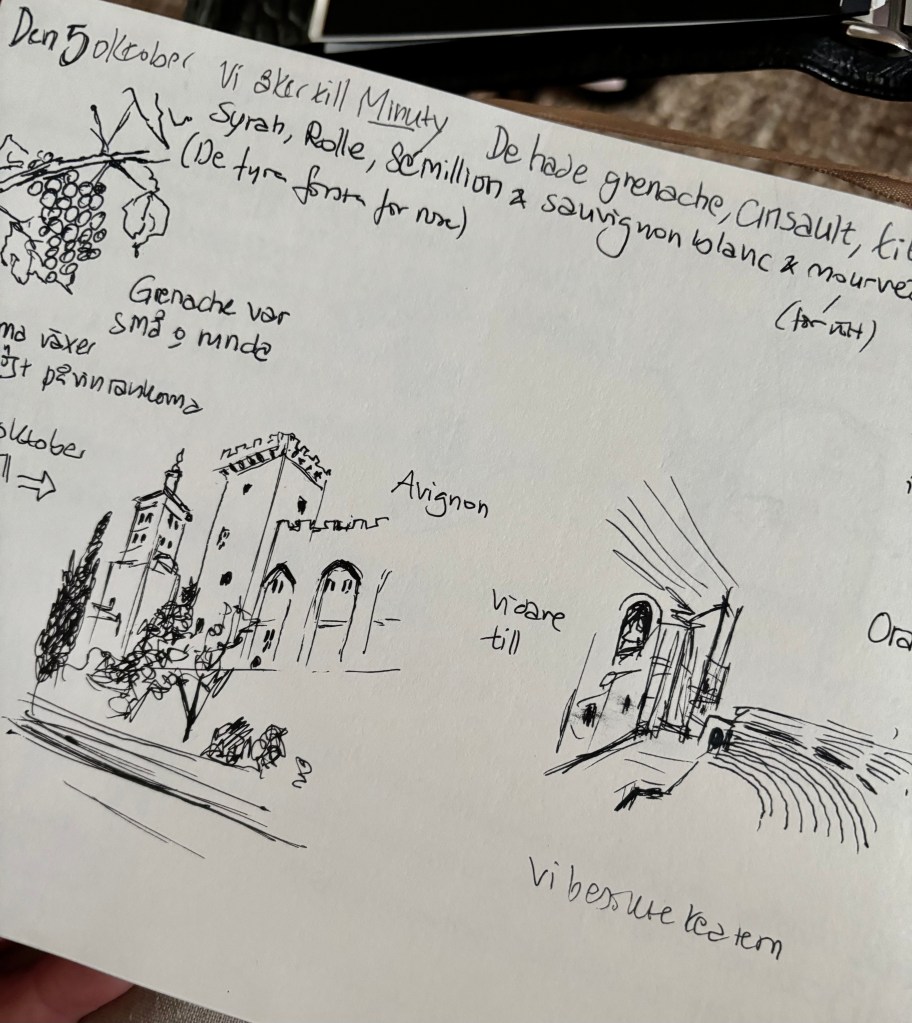 Den 5 oktober Vi åker till Minuty De hade grenache, Cinsault,
Syrah, Rolle, Sémillion & sauvignon blanc &
(De fyra första för rosé)
(för rött)
Grenache var
små o runda
växer
på vinrankorna
oktober
Avignon
vidare
till
Vi besökte teatern